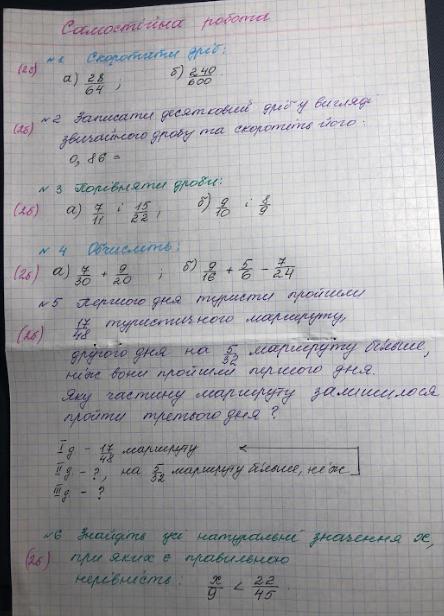 Самостійна робота
№1 Скоротити дріб:
(2б) а) 28/64 ; б) 240/600
№2 Записати десятковий дріб у вигляді
(2б) звичайного дробу та скоротіть його:
0,86 =
№3 Порівняти дроби:
(2б) а) 7/11 і 15/22 ; б) 9/10 і 8/9
№4 Обчислить:
(2б) а) 7/30 + 9/20 ; б) 9/16 + 5/6 - 7/24
№5 Першого дня туристи пройшли
(2б) 17/48 туристичного маршруту,
другого дня на 5/32 маршруту більше,
ніж вони пройшли першого дня.
Яку частину маршруту залишилося
пройти третього дня?
І д - 17/48 маршруту
ІІ д - ?, на 5/32 маршруту більше, ніж
ІІІ д - ?
№6 Знайдіть усі натуральні значення x,
(2б) при яких є правильною
нерівність: x/9 < 22/45